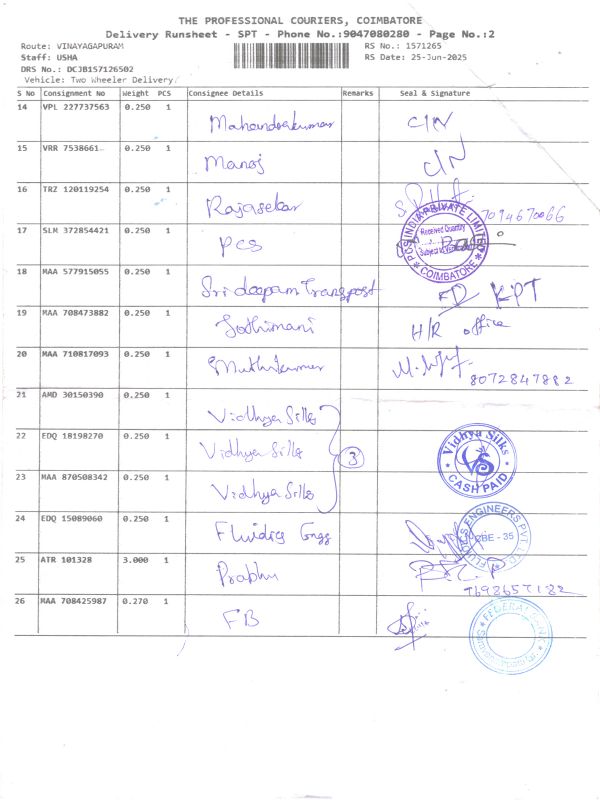 THE PROFESSIONAL COURIERS, COIMBATORE
Delivery Runsheet - SPT - Phone No.:9047080280 - Page No.:2
Route: VINAYAGAPURAM RS No.: 1571265
Staff: USHA RS Date: 25-Jun-2025
DRS No.: DCJB157126502
Vehicle: Two Wheeler Delivery
S No Consignment No Weight PCS Consignee Details Remarks Seal & Signature
14 VPL 227737563 0.250 1 Mahendrakumar C/N
15 VRR 7538661 0.250 1 Manoj C/N
16 TRZ 120119254 0.250 1 Rajasekar 7094670066
17 SLM 372854421 0.250 1 PCS
PCS INDIA PRIVATE LIMITED
Received Quantity
Subject to
COIMBATORE
18 MAA 577915055 0.250 1 Sri deepam Transpost FD KPT
19 MAA 708473882 0.250 1 Jothimani H/R office
20 MAA 710817093 0.250 1 Muthukumar 8072847882
21 AMD 30150390 0.250 1 Vidhya Silks
22 EDQ 18198270 0.250 1 Vidhya Silks 3
Vidhya Silks
VS
CASH PAID
23 MAA 870508342 0.250 1 Vidhya Silks
24 EDQ 15089060 0.250 1 Fluidics Engg
FLUIDICS ENGINEERS PVT. LTD.
CBE - 35
25 ATR 101328 3.000 1 Prabhu
7698657182
26 MAA 708425987 0.270 1 FB
FEDERAL BANK